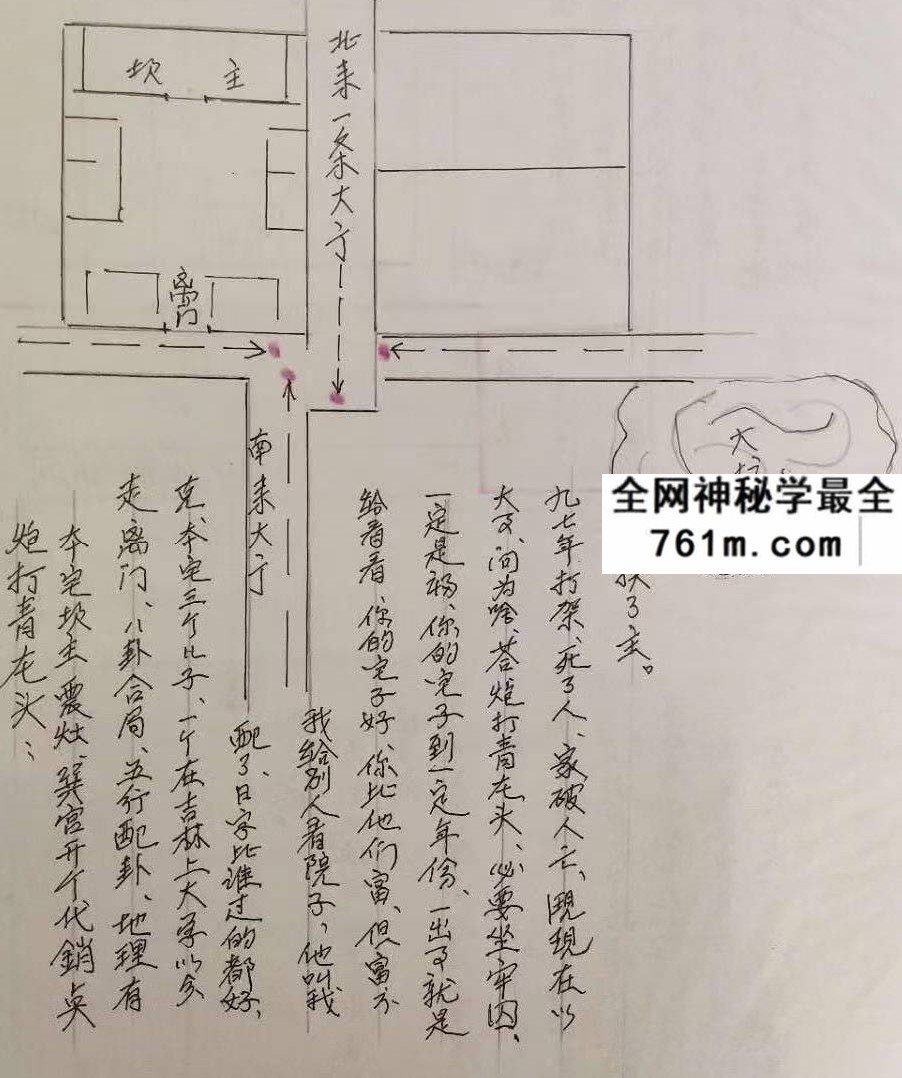 坎 主
离门
北来一条大亍
南来大亍
大坑
炮打青龙头：
本宅坎主震灶、巽宫开个代銷点
走离门、八卦合局、五行配卦、地理有
克、本宅三个儿子、一个在吉林上大学以分
配了、日字比谁过的都好、
我给别人看院子，他叫我
给看看、你的宅子好、你比他们富、但富不
一定是祸、你的宅子到一定年份、一出事就是
大事、问为啥、荅炮打青龙头、必要坐牢囚、
九七年打架、死了人、家破人亡、现在以
了主。
全网神秘学最全
761m.com